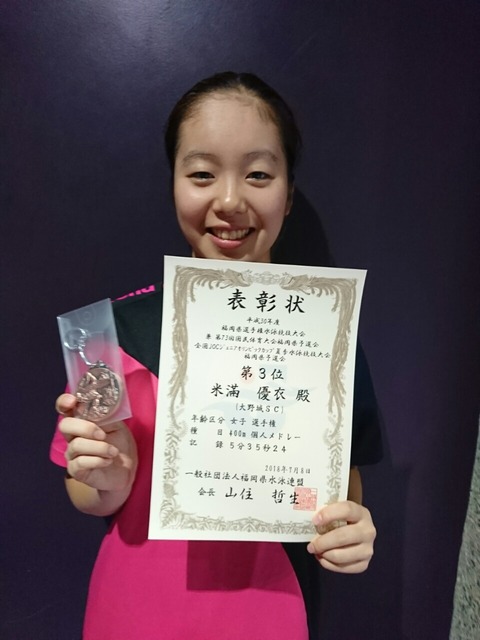 表彰状
平成30年度
福岡県選手権水泳競技大会
兼 第73回国民体育大会福岡県予選会
全国JOCジュニアオリンピックカップ夏季水泳競技大会
福岡県予選会
第3位
米満 優衣 殿
(大野城SC)
年齢区分 女子 選手権
種目 400m 個人メドレー
記録 5分35秒24
2018年7月8日
一般社団法人福岡県水泳連盟
会長 山住 哲生